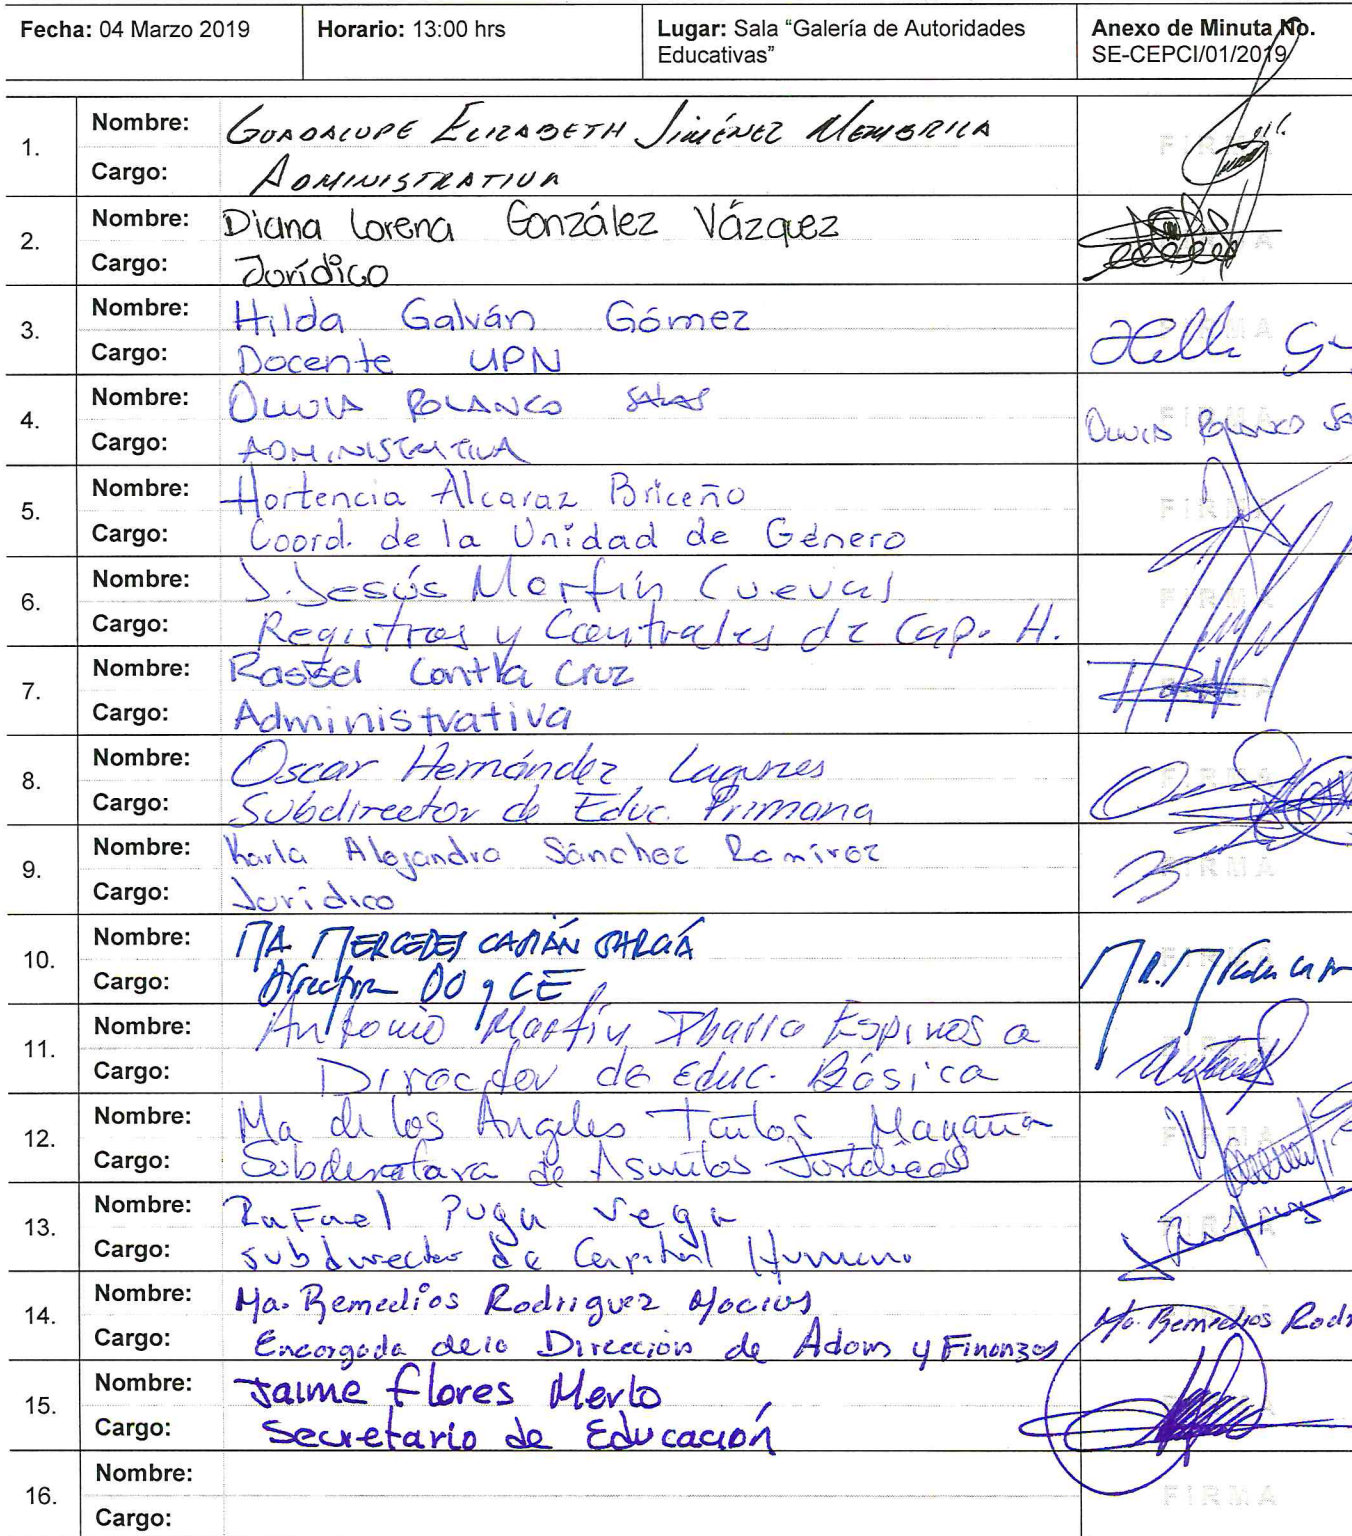 Fecha: 04 Marzo 2019 Horario: 13:00 hrs Lugar: Sala "Galería de Autoridades Educativas" Anexo de Minuta No. SE-CEPCI/01/2019
1. Nombre: GUADALUPE ELIZABETH JIMÉNEZ MEMBRILA FIRMA
Cargo: ADMINISTRATIVA
2. Nombre: Diana Lorena González Vázquez FIRMA
Cargo: Jurídico
3. Nombre: Hilda Galván Gómez FIRMA
Cargo: Docente UPN
4. Nombre: OLIVIA POLANCO SALAS FIRMA
Cargo: ADMINISTRATIVA
5. Nombre: Hortencia Alcaraz Briceño FIRMA
Cargo: Coord. de la Unidad de Género
6. Nombre: J. Jesús Morfín Cuevas FIRMA
Cargo: Registros y Controles de Cap. H.
7. Nombre: Rassel Contla Cruz FIRMA
Cargo: Administrativa
8. Nombre: Oscar Hernández Lagunes FIRMA
Cargo: Subdirector de Educ. Primaria
9. Nombre: Karla Alejandra Sánchez Ramírez FIRMA
Cargo: Jurídico
10. Nombre: MA. MERCEDES GARCÍA FIRMA
Cargo: Directora DO y CE
11. Nombre: Antonio Martín Ibarra Espinosa FIRMA
Cargo: Director de Educ. Básica
12. Nombre: Ma de los Angeles Magaña FIRMA
Cargo: de Asuntos Jurídicos
13. Nombre: Rafael Puga Vega FIRMA
Cargo: subdirector de Capital Humano
14. Nombre: Ma. Remedios Rodriguez Macias Ma. Remedios Rodr
Cargo: Encargada de la Dirección de Admon y Finanzas
15. Nombre: Jaime Flores Merlo FIRMA
Cargo: Secretario de Educación
16. Nombre: FIRMA
Cargo: